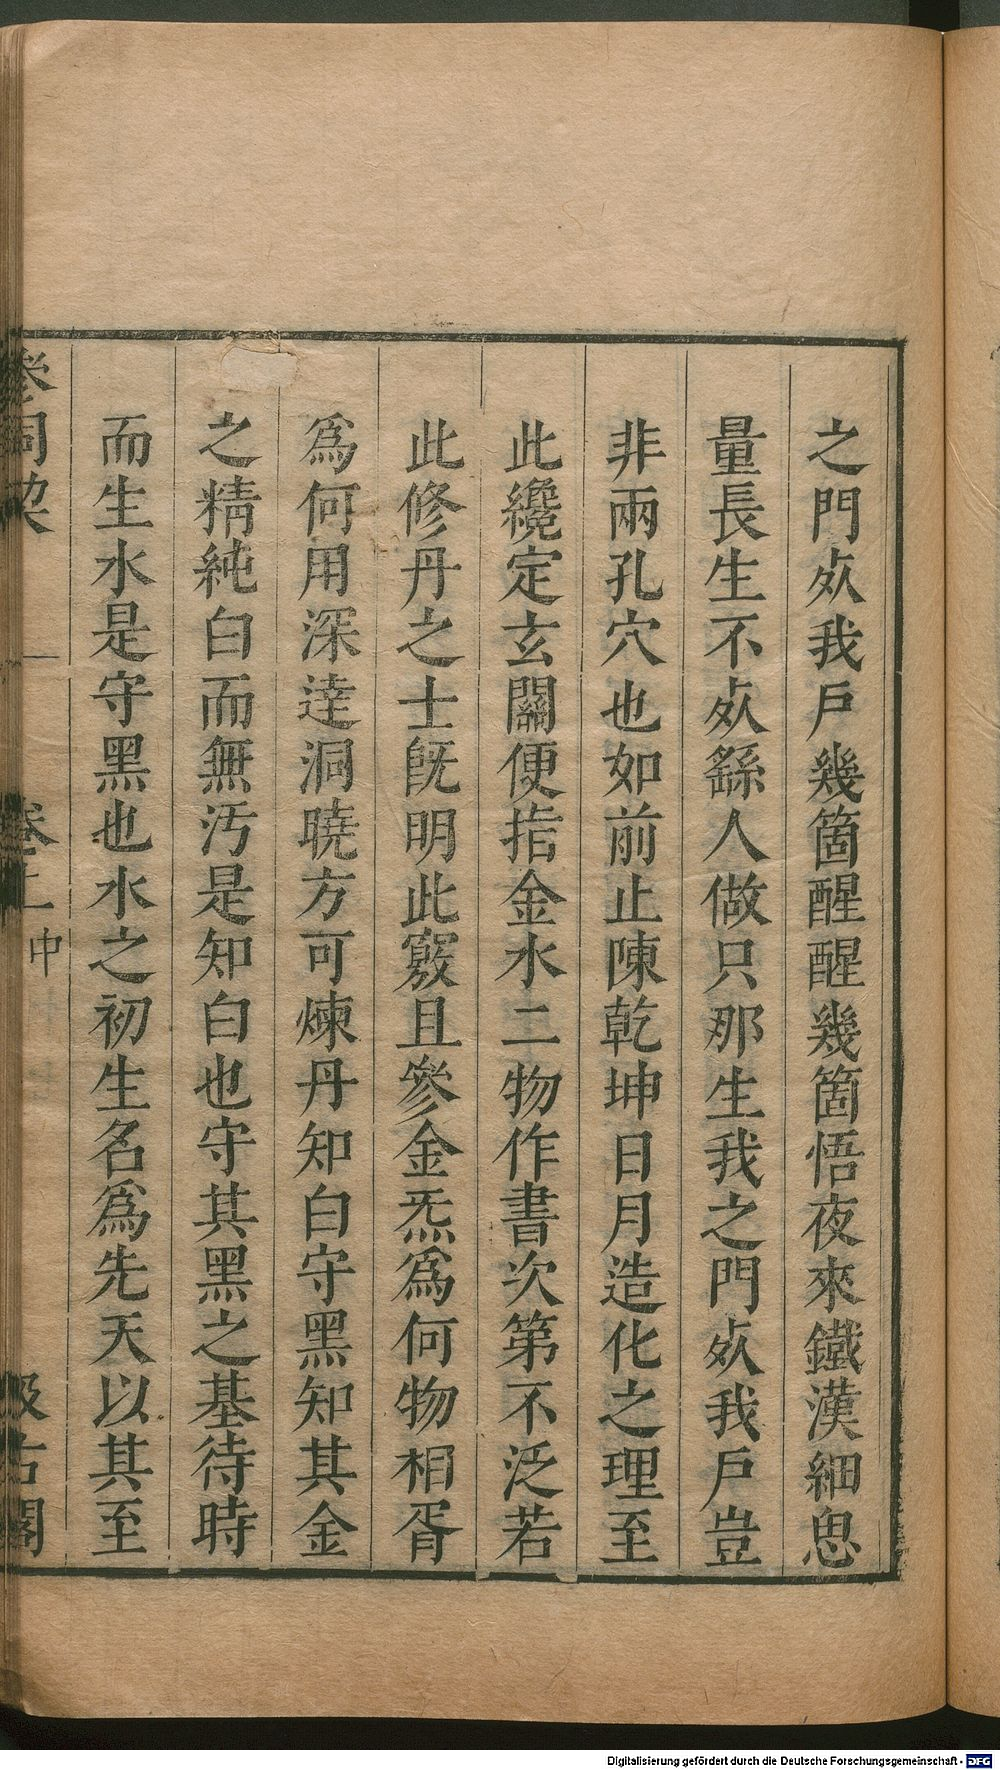 之門𣦸我戶幾箇醒醒幾箇悟夜來鐵漢細思
量長生不𣦸繇人做只那生我之門𣦸我戶豈
非兩孔穴也如前止陳乾坤日月造化之理至
此纔定玄關便指金水二物作書次第不泛若
此修丹之士旣明此竅且參金炁爲何物相胥
爲何用深達洞曉方可煉丹知白守黑知其金
之精純白而無汚是知白也守其黑之基待時
而生水是守黑也水之初生名爲先天以其至
參同契 卷上 中 汲古閣
Digitalisierung gefördert durch die Deutsche Forschungsgemeinschaft - DFG